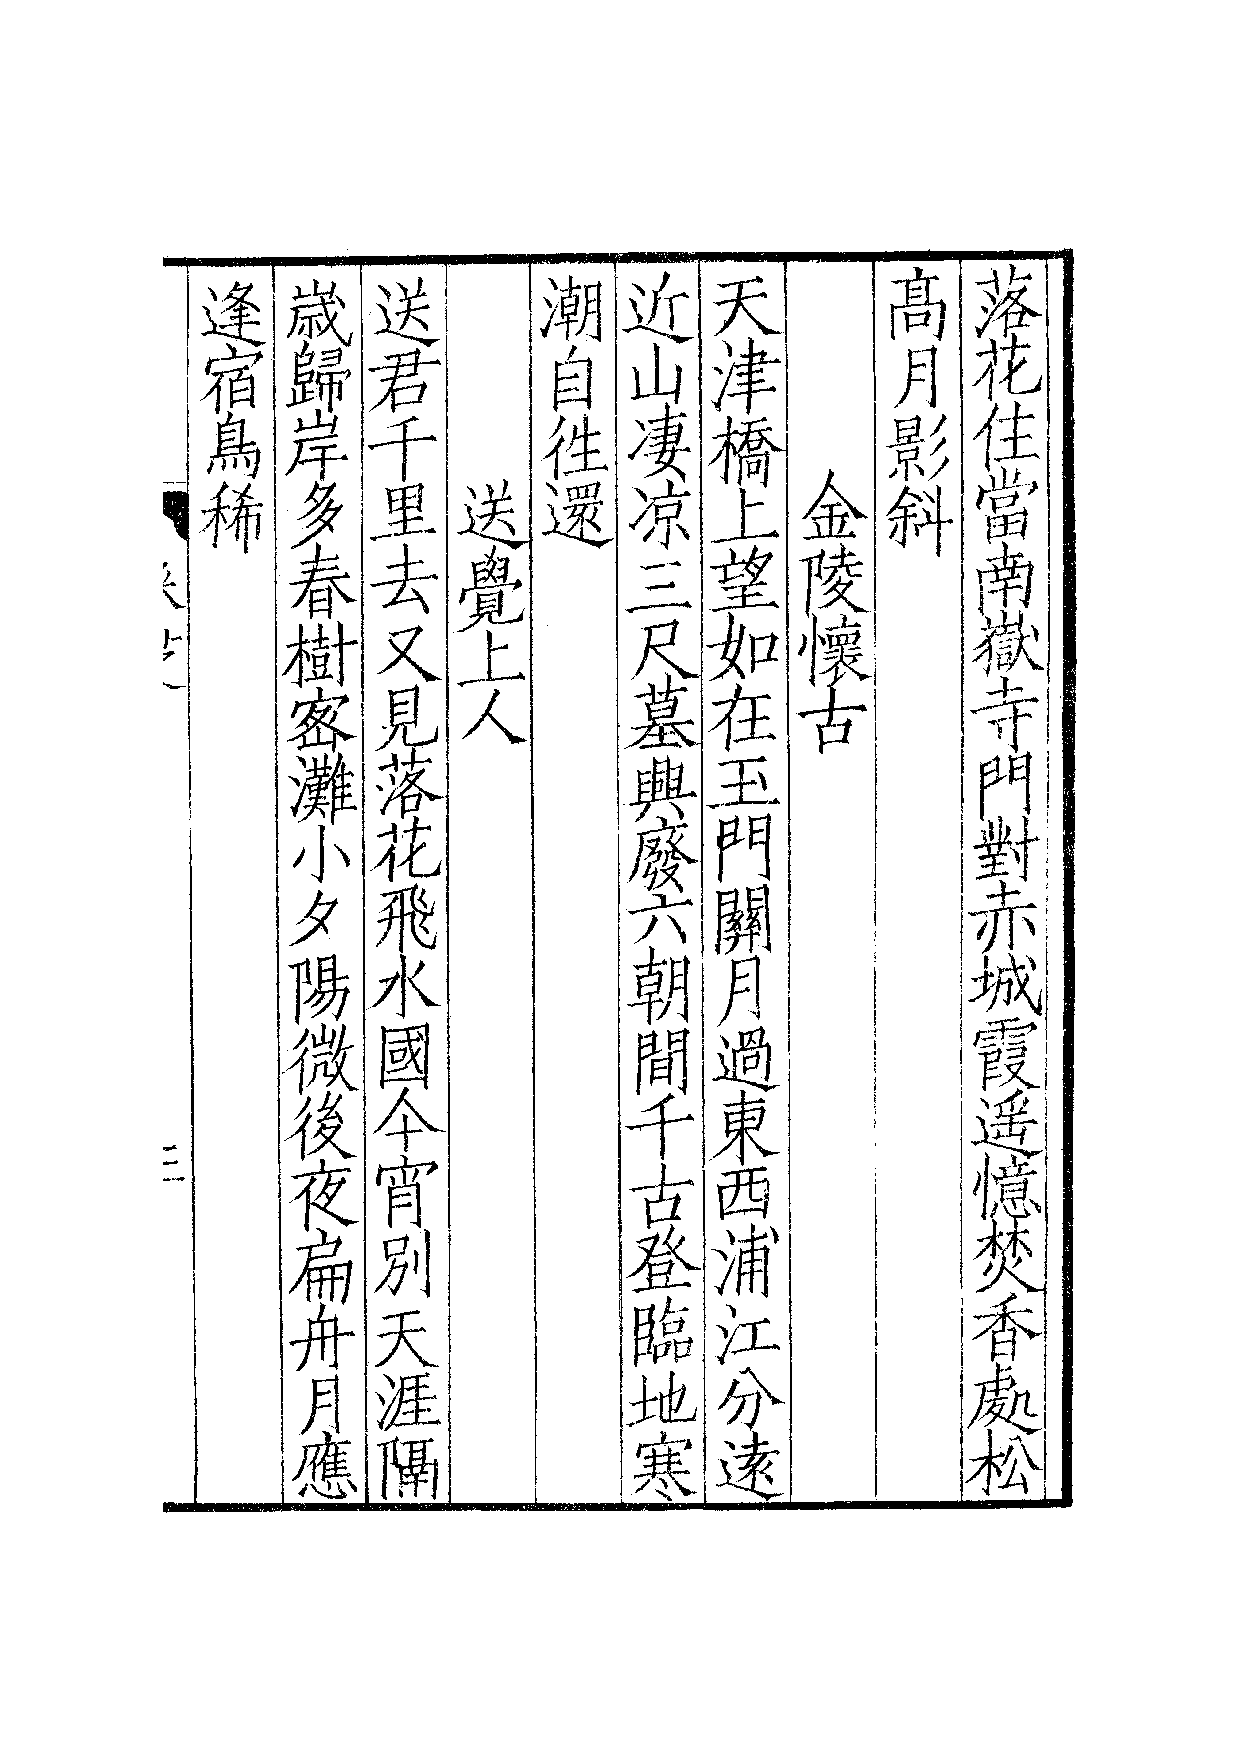 落花住當南嶽寺門對赤城霞遥憶焚香處松
髙月影斜
金陵懷古
天津橋上望如在玉門關月過東西浦江分逺
近山凄凉三尺墓興廢六朝間千古登臨地寒
潮自徃還
送覺上人
送君千里去又見落花飛水國今宵別天涯隔
歳歸岸多春樹宻灘小夕陽微後夜扁舟月應
逢宿鳥稀